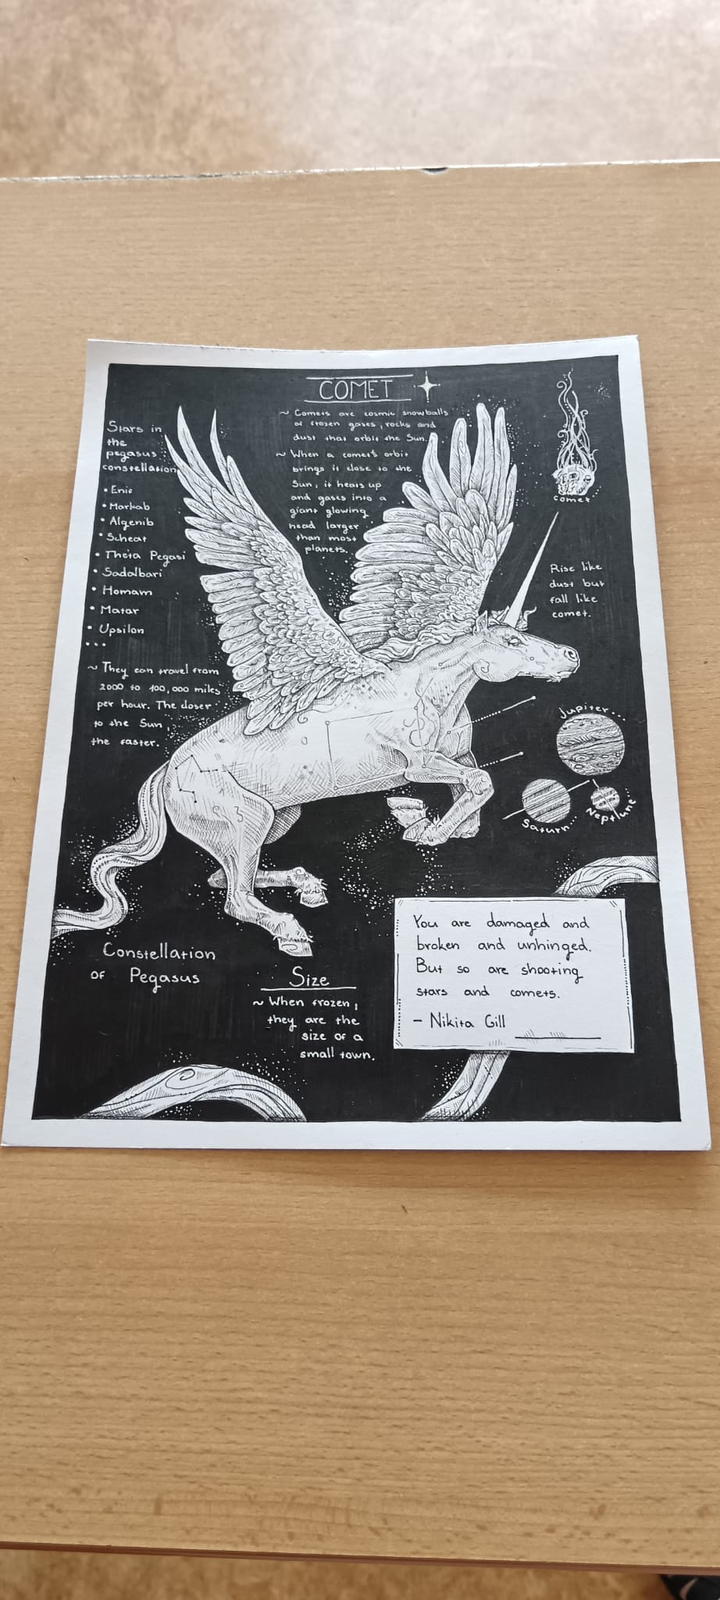 COMET
~ Comets are cosmic snowballs
of frozen gases, rocks and
dust that orbit the Sun.
~ When a comet's orbit
brings it close to the
Sun, it heats up
and gases into a
giant glowing
head larger
than most
planets.
Stars in
the
pegasus
constellation
• Enif
• Markab
• Algenib
• Scheat
• Theta Pegasi
• Sadalbari
• Homam
• Matar
• Upsilon
...
~ They can travel from
2000 to 100,000 miles
per hour. The closer
to the Sun,
the faster.
comet
Rise like
dust but
fall like
comet.
Jupiter...
Saturn
Neptune
Constellation
of Pegasus
Size
~ When frozen,
they are the
size of a
small town.
You are damaged and
broken and unhinged.
But so are shooting
stars and comets.
- Nikita Gill